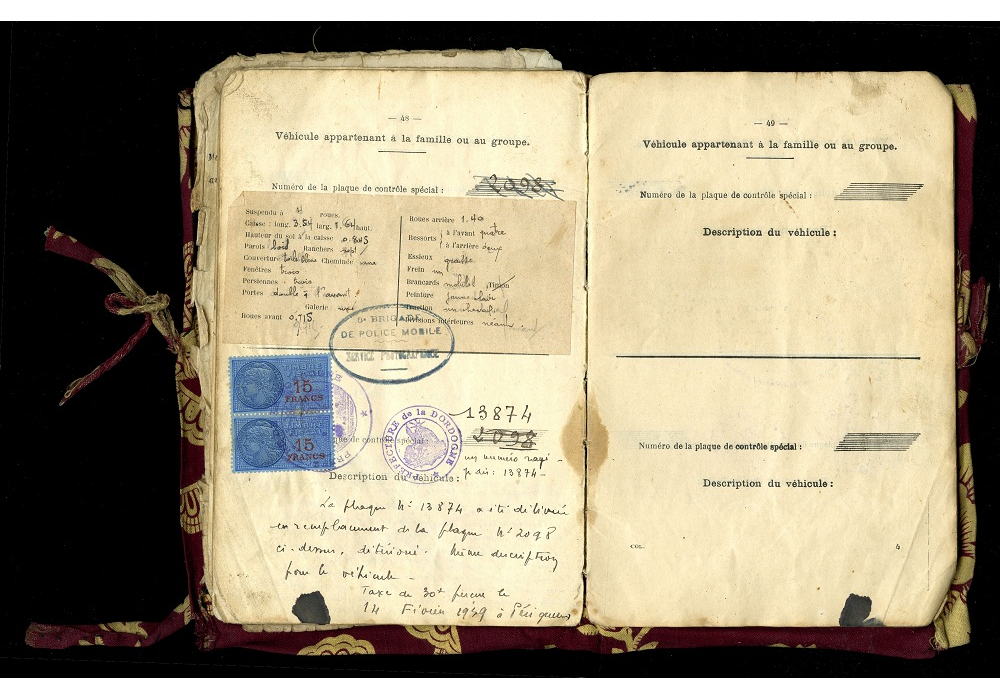 — 48 —
Véhicule appartenant à la famille ou au groupe.
Numéro de la plaque de contrôle spécial : 2098
Suspendu à 4 roues.
Caisse : long. 3.54 larg. 1.64 haut.
Hauteur du sol à la caisse 0.845
Parois bois Ranchers
Couverture tôle Cheminée une
Fenêtres trois
Persiennes : trois
Portes double à l'avant.
Galerie
Roues avant 0.715.
Roues arrière 1.40
Ressorts à l'avant quatre
à l'arrière deux
Essieux
Frein un
Brancards mobiles Timon
Peinture jaune clair
Traction
Divisions intérieures néant
5e BRIGADE
DE POLICE MOBILE
SERVICE PHOTOGRAPHIQUE
15
FRANCS
15
FRANCS
PRÉFECTURE de la DORDOGNE
13874
de contrôle spécial : 2098
un numéro rayé
je dis : 13874 —
Description du véhicule :
La plaque No 13874 a été délivrée
en remplacement de la plaque No 2098
ci-dessus, détérioré. Même description
pour le véhicule —
Taxe de 30f perçue le
14 Février 1939 à Périgueux
— 49 —
Véhicule appartenant à la famille ou au groupe.
Numéro de la plaque de contrôle spécial :
Description du véhicule :
Numéro de la plaque de contrôle spécial :
Description du véhicule :
COL. 4